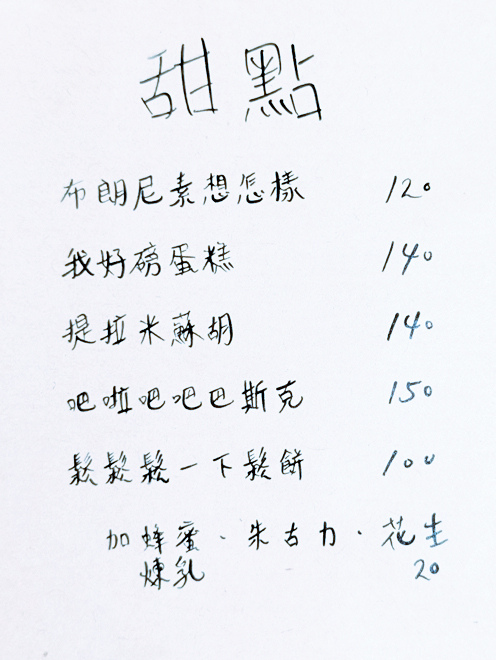 甜點
布朗尼素想怎樣 120
我好磅蛋糕 140
提拉米蘇胡 140
吧啦吧吧巴斯克 150
鬆鬆鬆一下鬆餅 100
加蜂蜜·朱古力·花生
煉乳 20